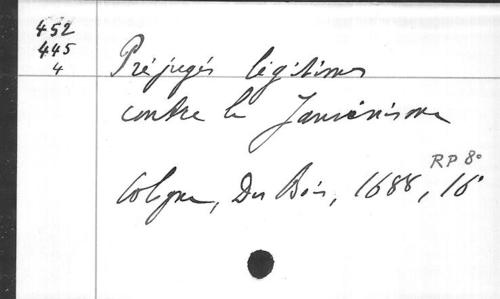 452
445
4
Préjugés légitimes
contre le Jansénisme
RP 8°
Cologne, Du Bois, 1688, 16°